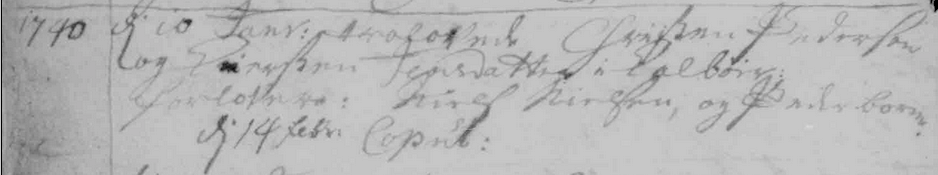 1740 dj 10 Janr: trolovede Christen Pedersen
og Kiersten Jensdatter i Kalbÿir:
Forlovere: Niels Nielsen, og Peder
dj 14 febr. Copul: